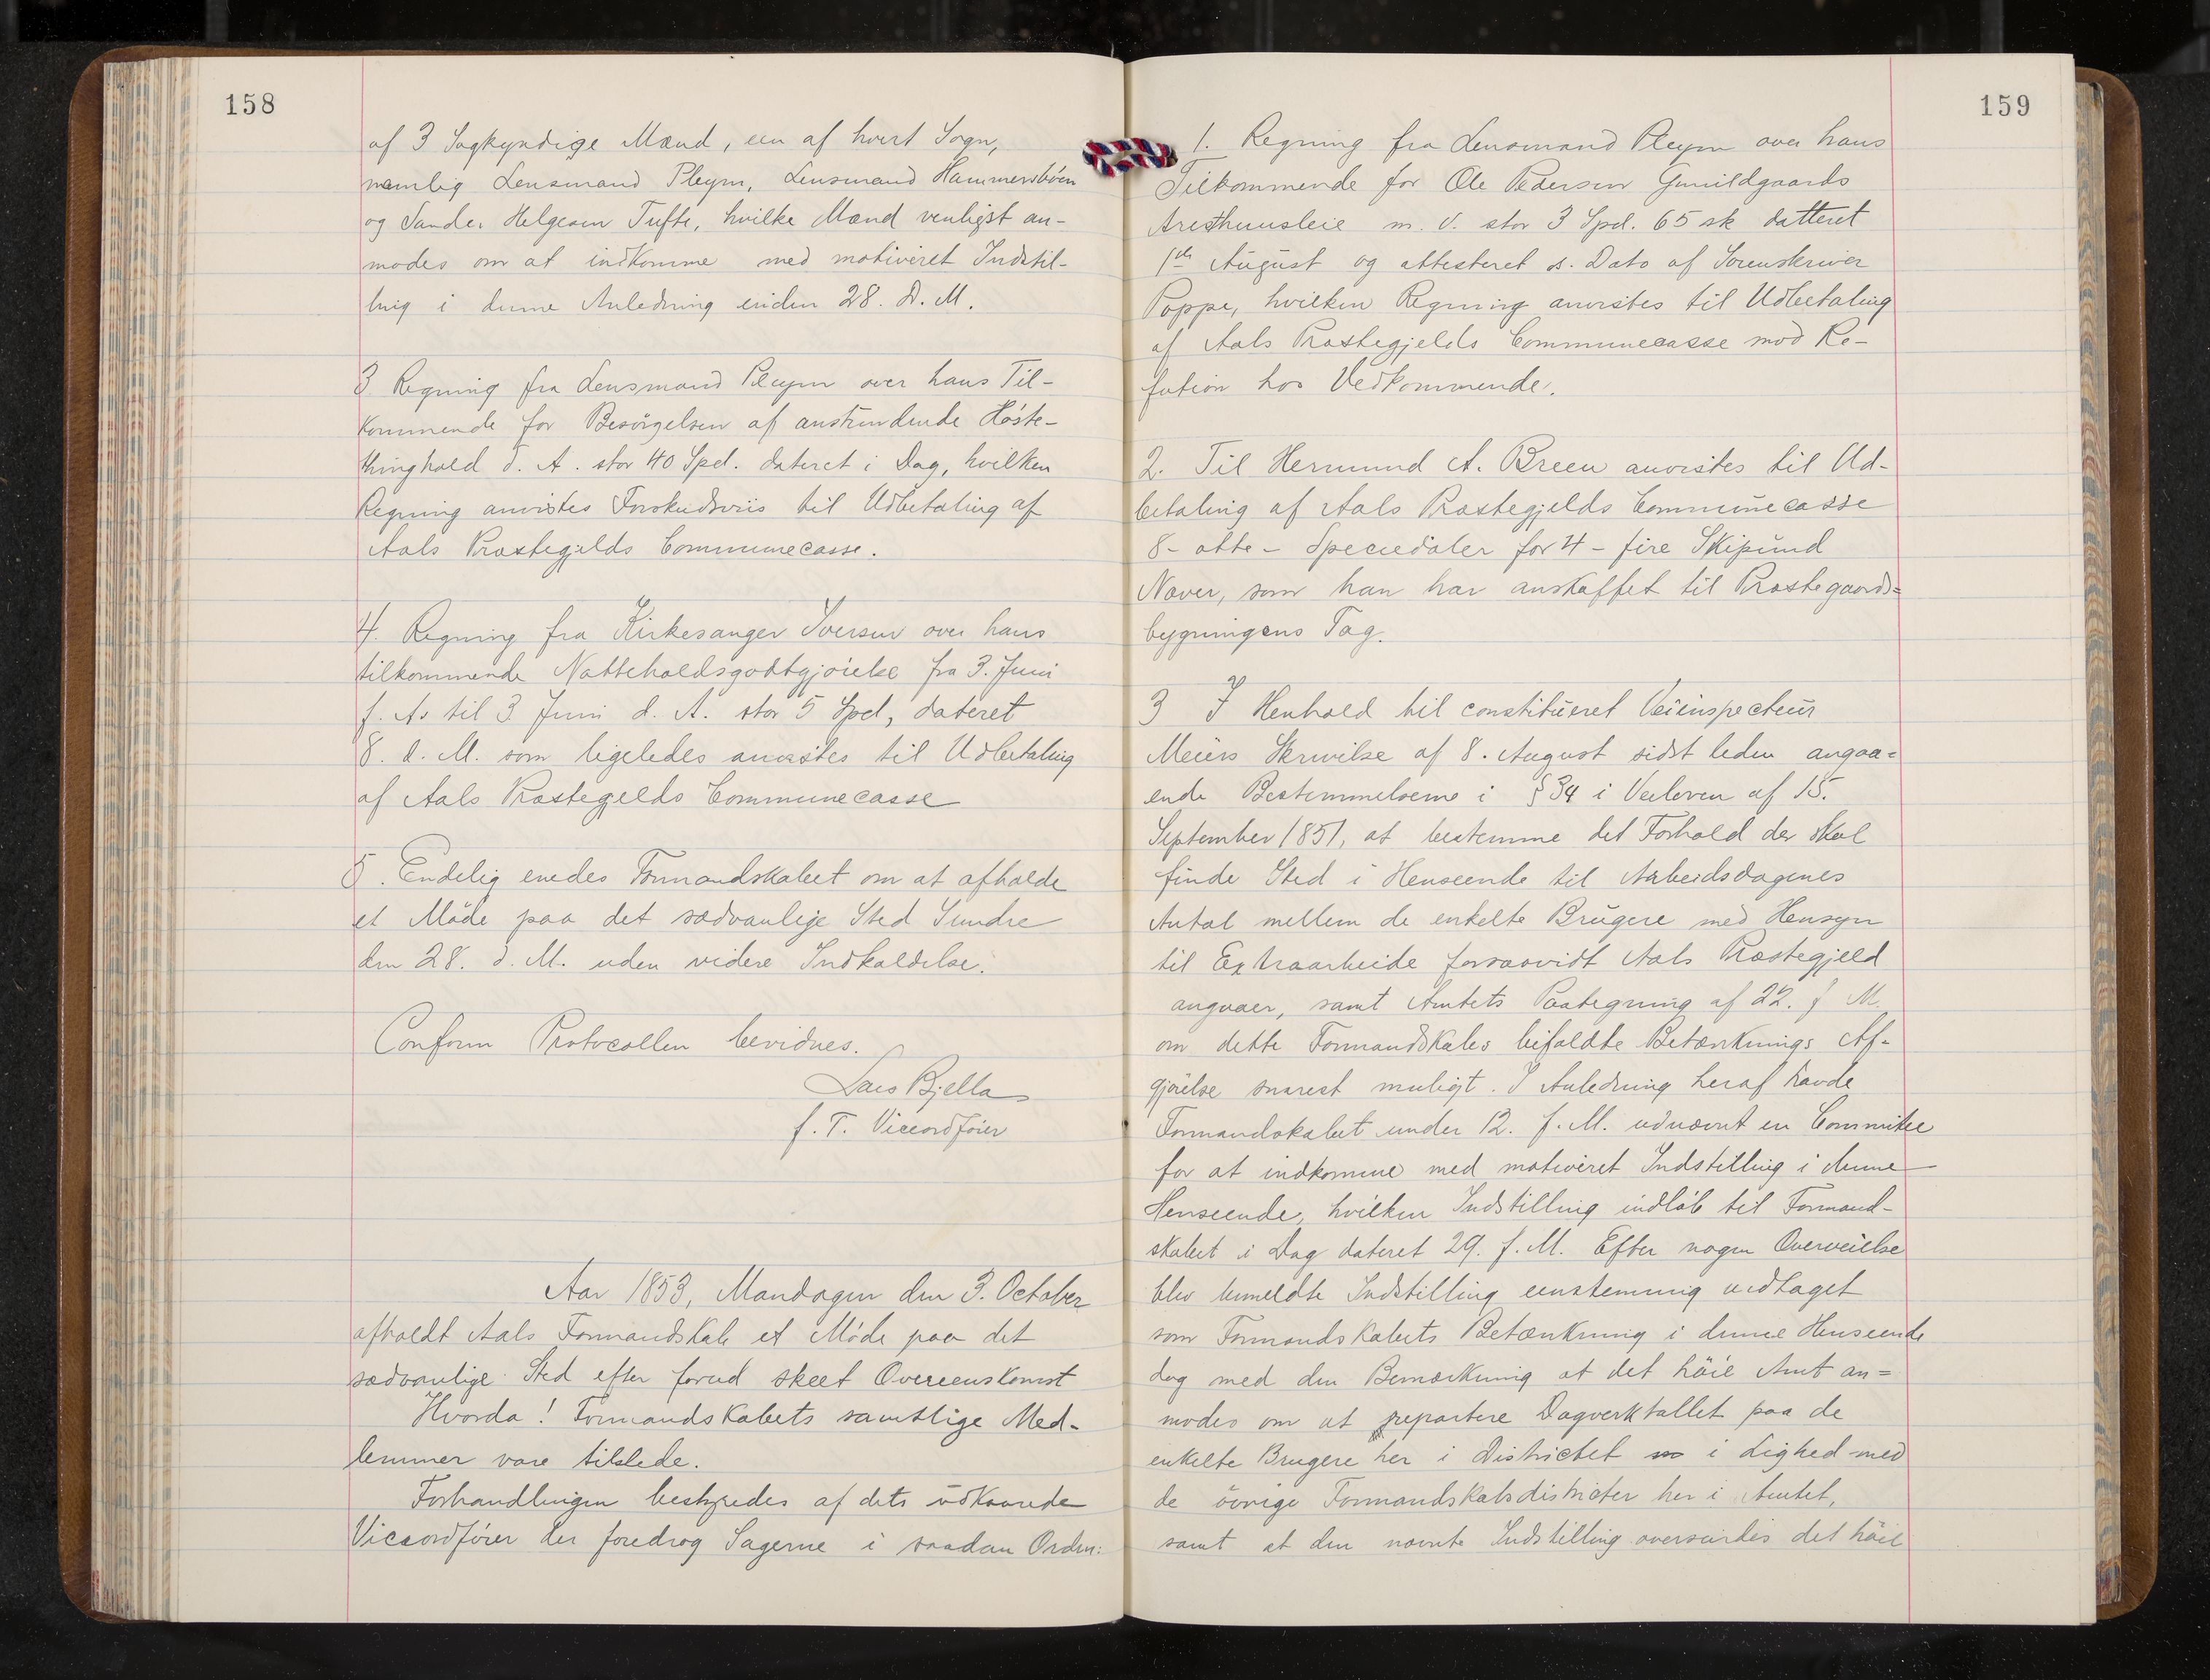 158
af 3 Sagkyndige Mænd, een af hvert Sogn,
nemlig Lensmand Pleym, Lensmand Hammersbøen
og Sander Helgesen Tufte, hvilke Mænd venligst an-
modes om at indkomme med motiveret Indstil-
ling i denne Anledning inden 28. d. M.
3 Regning fra Lensmand Pleym over hans Til-
kommende for Besörgelsen af anstundende Höste-
thinghold d. A. stor 40 Spd. dateret i Dag, hvilken
Regning anvistes Forskudsviis til Udbetaling af
Aals Præstegjelds Communecasse.
4. Regning fra Kirkesanger Iversen over hans
tilkommende Natteholdsgodtgjörelse fra 3. Juni
f. As til 3 Juni d. A. stor 5 Spd, dateret
8. d. M. som ligeledes anvistes til Udbetaling
af Aals Præstegjelds Communecasse
5. Endelig enedes Formandskabet om at afholde
et Möde paa det sædvanlige Sted Sundre
den 28. d. M. uden videre Indkaldelse.
Conform Protocollen bevidnes.
Lars Bjella
f. T. Viceordförer
Aar 1853, Mandagen den 3. October
afholdt Aals Formandskab et Möde paa det
sædvanlige Sted efter forud skeet Overeenskomst
Hvorda! Formandskabets samtlige Med-
lemmer vare tilstede.
Forhandlingen bestyredes af dets udkaarede
Viceordförer der foredrog Sagerne i saadan Orden:
159
1. Regning fra Lensmand Pleym over hans
Tilkommende for Ole Pedersen Gunildgaards
Aresthuusleie m. V. stor 3 Spd. 65 sk datteret
1ste August og attesteret s. Dato af Sorenskriver
Poppe, hvilken Regning anvistes til Udbetaling
af Aals Præstegjelds Communecasse mod Re-
fution hos Vedkommende.
2. Til Hermund A. Breen anvistes til Ud-
betaling af Aals Præstegjelds Communecasse
8 - otte - Speciedaler for 4 - fire Skipund
Næver, som han har anskaffet til Præstegaards=
bygningens Tag.
3 I Henhold til constitueret Veiinspecteur
Meiers Skrivelse af 8. August sidst leden angaa=
ende Bestemmelserne i § 34 i Veiloven af 15.
September 1851, at bestemme det Forhold der skal
finde Sted i Henseende til Arbeidsdagenes
Antal mellem de enkelte Brugere med Hensyn
til Extraarbeide forsaavidt Aals Præstegjeld
angaaer, samt Amtets Paategning af 22. f M.
om dette Formandskabs bifaldte Betænknings Af-
gjörelse snarest muligt. I Anledning heraf havde
Formandskabet under 12. f. M. udnævnt en Committee
for at indkomme med motiveret Indstilling i denne
Henseende, hvilken Indstilling indlöb til Formand-
skabet i Dag dateret 29. f. M. Efter nogen Overveielse
blev bemeldte Indstilling eenstemmig vedtaget
som Formandskabets Betænkning i denne Henseende
dog med den Bemærkning at det höie Amt an=
modes om at repartere Dagverktallet paa de
enkelte Brugere her i Districtet i Lighed med
de övrige Formandskabsdistricter her i Amtet,
samt at den nævnte Indstilling oversendes det höie